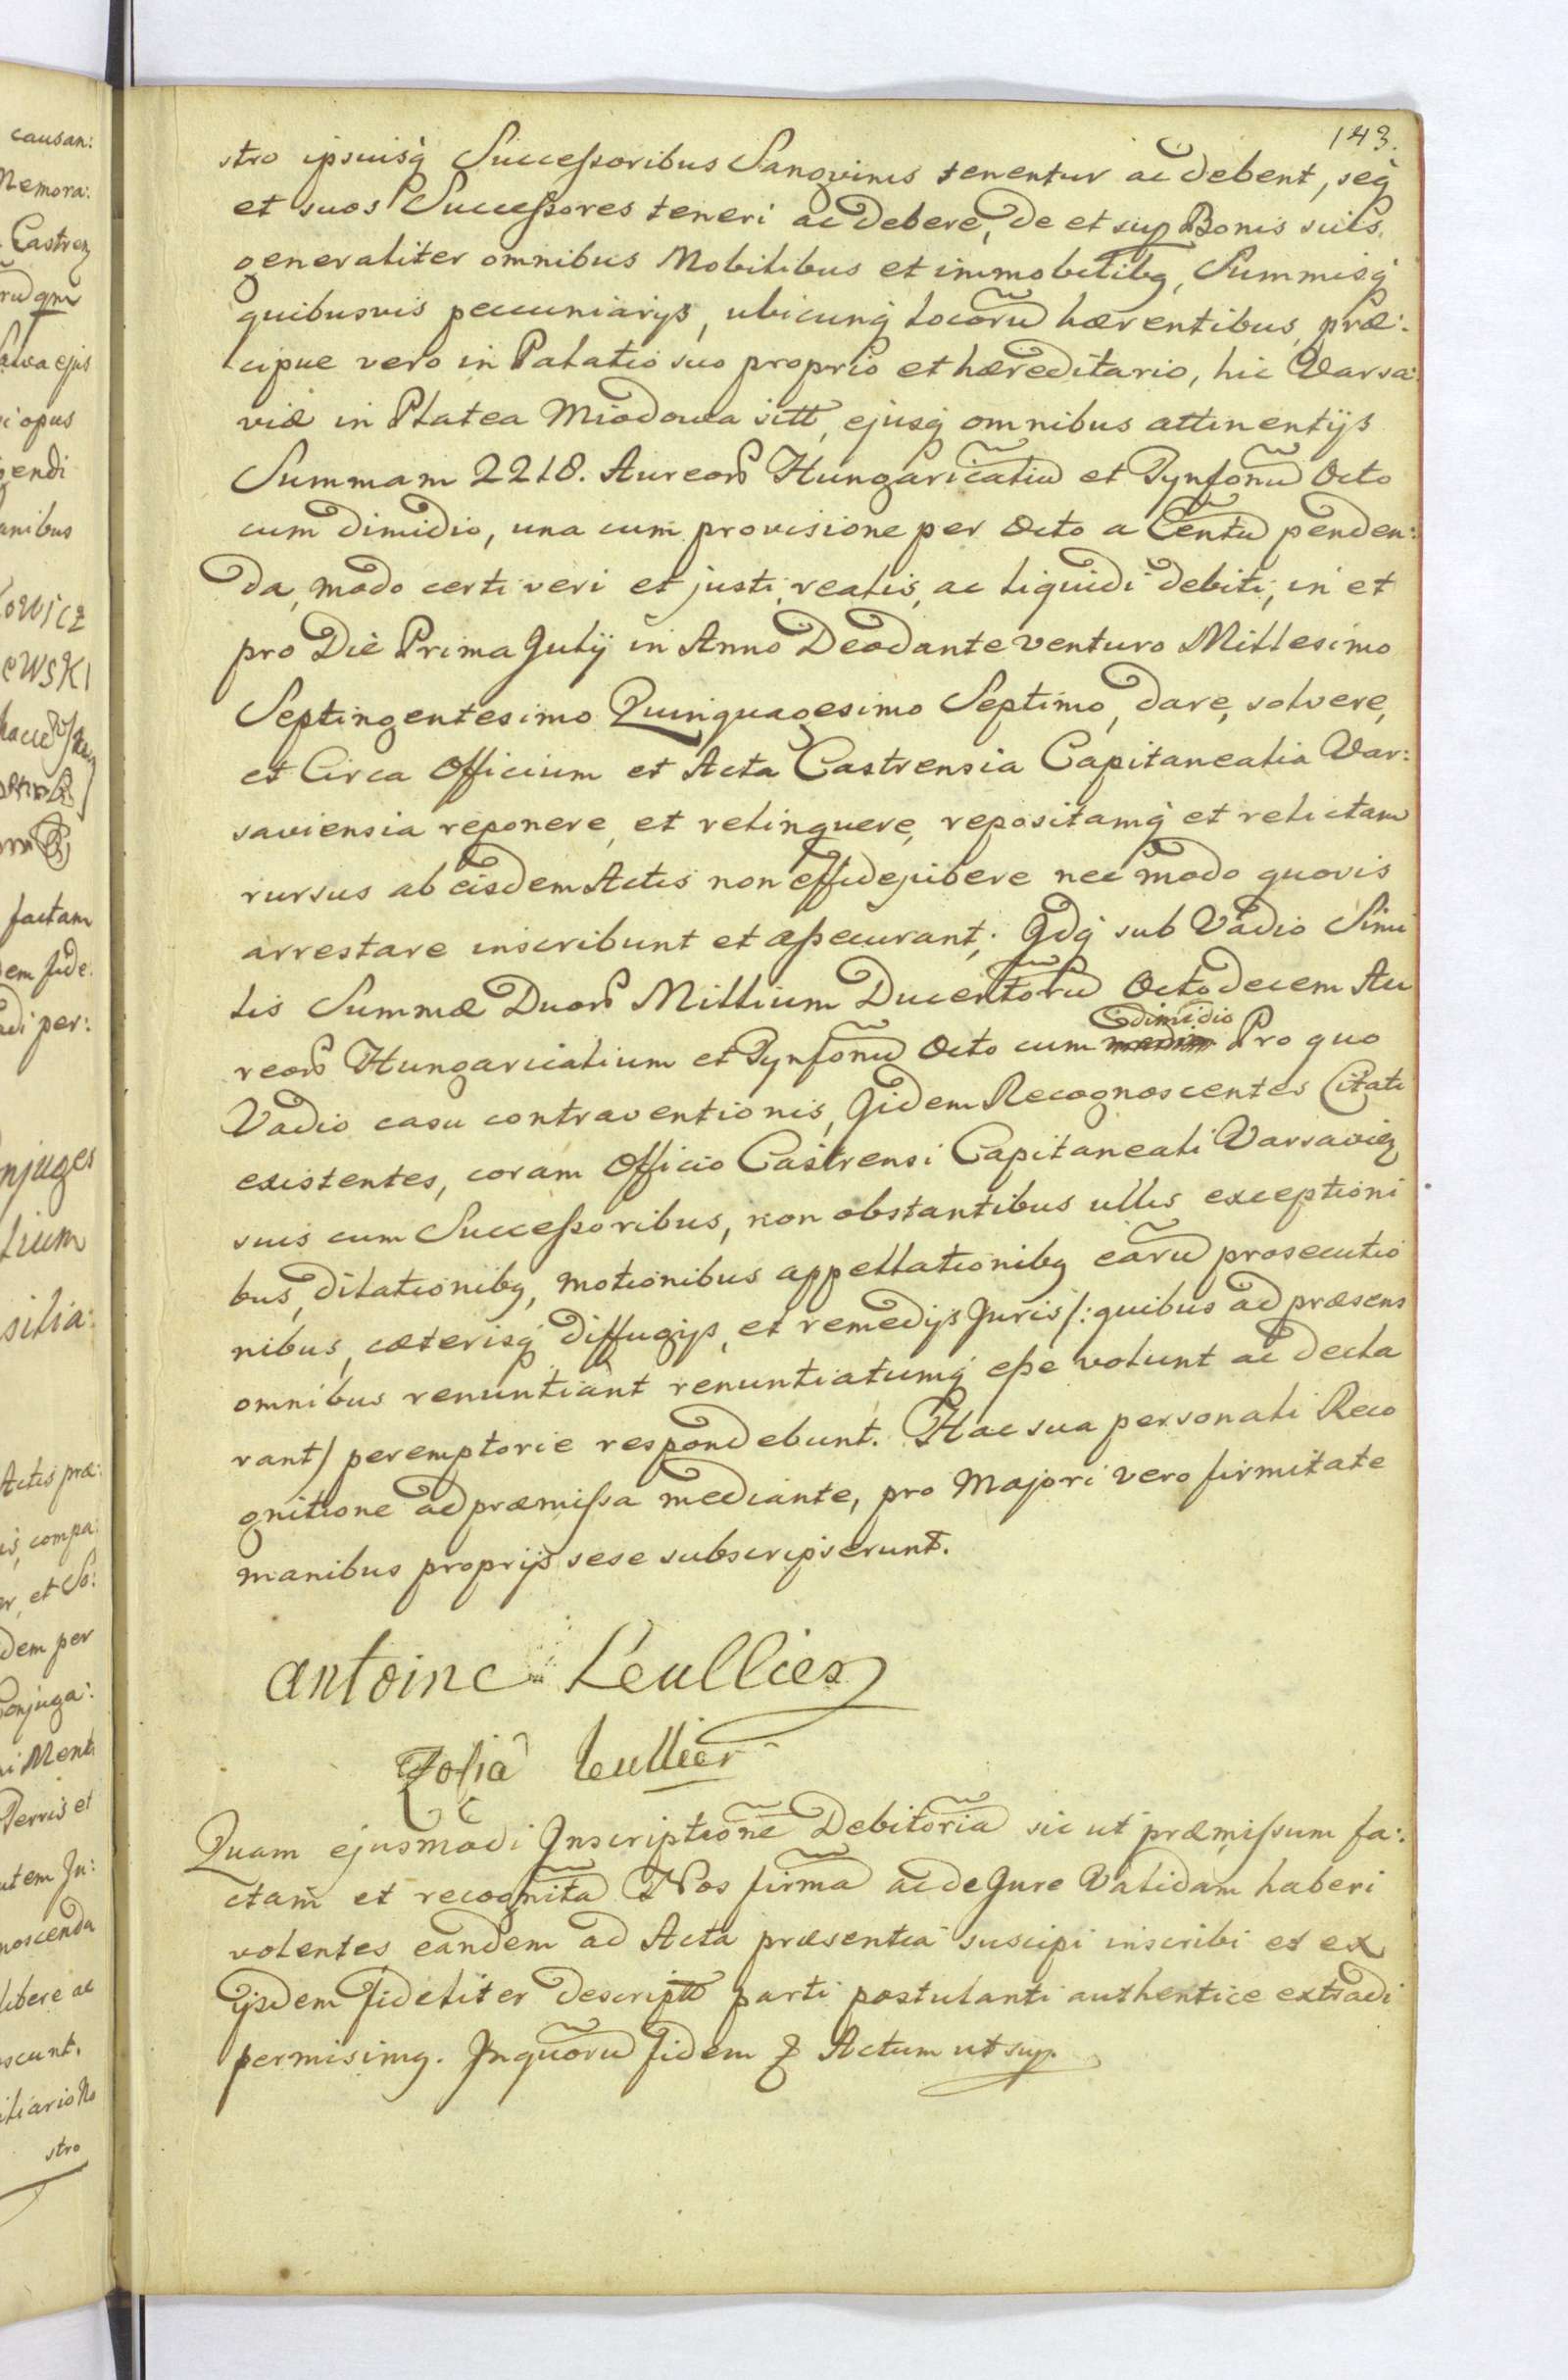 143.
stro ipsuisq Successoribus Sangvinis tenentur ac debent, seq
et suos Successores teneri ac debere, de et sup Bonis suis
generaliter omnibus Mobilibus et immobilibq, Summisq
quibusvis pecuniarijs, ubicunq locorũ hærentibus, præ:
cipue vero in Palatio suo proprio et hæreditario, hic Varsa:
viæ in Platea Miodowa sitt, ejusq omnibus attinentijs
Summam 2218. Aureorũ Hungaricaliũ et Tynfonũ Octo
cum dimidio, una cum provisione per Octo a Centũ penden:
da, modo certi veri et justi, realis, ac liquidi debiti, in et
pro Die Prima Julij in Anno Deo dante venturo Millesimo
Septingentesimo Quinquagesimo Septimo, dare, solvere,
et Circa Officium et Acta Castrensia Capitanealia Var:
saviensia reponere, et relinquere, repositamq et relictam
rursus ab eisdem Actis non nec modo quovis
arrestare inscribunt et assecurant; Idq sub Vadio Simi
lis Summæ Duorũ Millium Ducentorũ Octodecem Au
reorũ Hungaricalium et Tynfonũ Octo cum dimidio Pro quo
Vadio casu contraventionis, Iidem Recognoscentes Citati
existentes, coram Officio Castrensi Capitaneali Varsavien
suis cum Successoribus, non obstantibus ullis exceptioni
bus, dilationibq, motionibus appellationibq earũ prosecutio
nibus, cæterisq diffugijs, et remedijs Juris /: quibus ad præsens
omnibus renuntiant renuntiatumq esse volunt ac decla
rant/ peremptorie respondebunt. Hac sua personali Reco
gnitione ad præmissa mediante, pro Majori vero firmitate
manibus proprijs sese subscripserunt.
antoine Leullier
Zofia leullier
Quam ejusmodi Inscriptionẽ Debitoriã sic ut præmissum fa:
ctam et recognitã Nos firmã ac de Jure Validam haberi
volentes eandem ad Acta præsentia suscipi inscribi et ex
ijsdem fideliter descript parti postulanti authentice extradi
permisimq. In quorũ fidem & Actum ut sup.
causan:
Memora:
Castren
opus
gendi
anibus
owicz
ewski
factam
em fide.
di per:
njuges
lium
silia:
Actis præ:
is, compa:
r, et So:
dem per
Conjuga:
Terris et
utem Ju:
noscenda
libere ac
scunt.
iliario No
stro